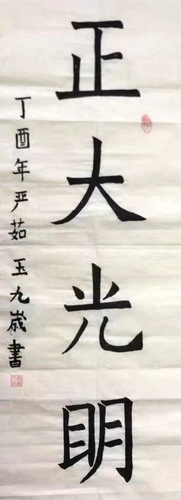 正大光明
丁酉年严茹玉九岁書